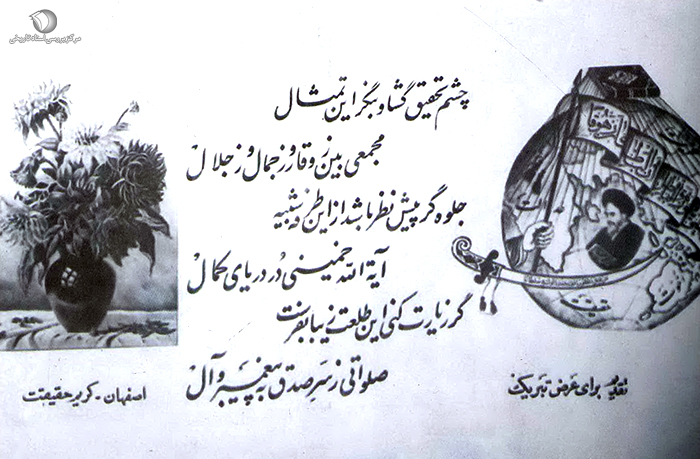 مرکز بررسی اسناد تاریخی
چشم تحقیق گشا و بنگر این تمثال
مجمعی بین ز وقار و ز جمال و ز جلال
جلوه گر پیش نظر باشد از این طرز شبیه
آیة الله خمینی در دریای کمال
گر زیارت کنی این طلعت زیبا بفرست
صلواتی ز سر صدق به پیغمبر و آل
تقدیم برای عرض تبریک
اصفهان - کریر حقیقت